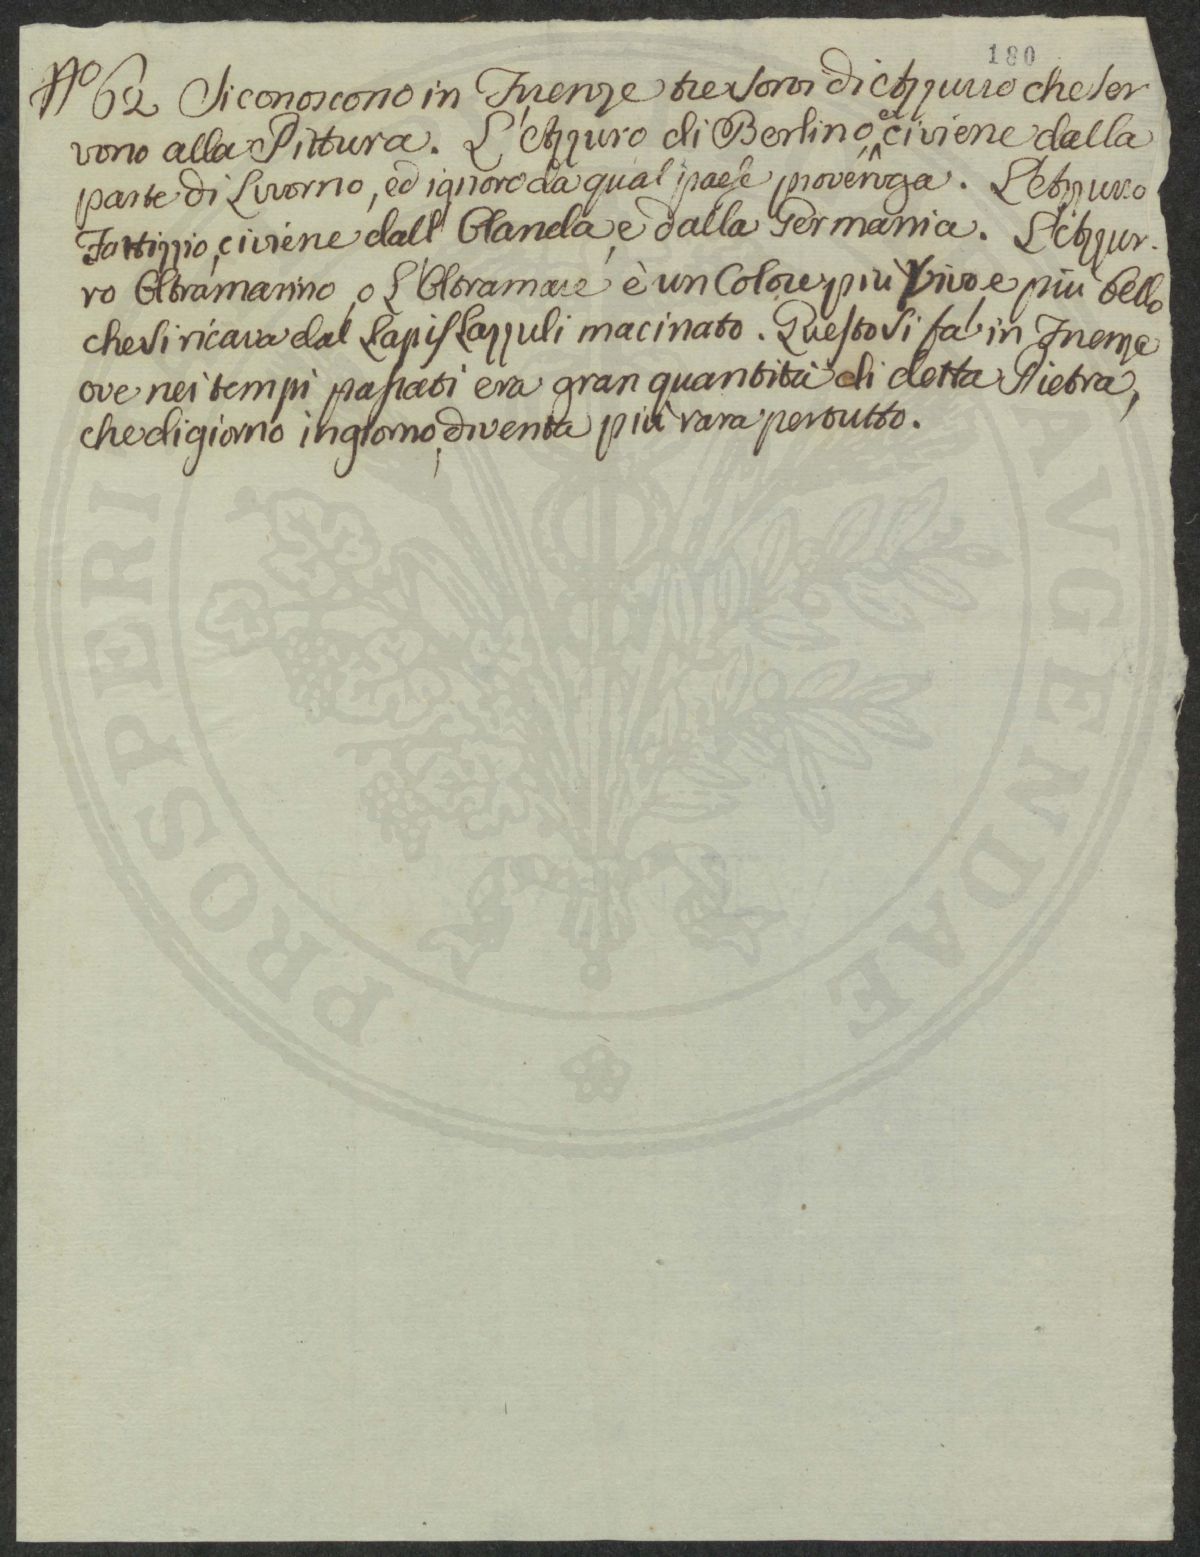 180
No 62 Si conoscono in Firenze tre sorti di Azzurro che ser
vono alla Pittura. L'Azzuro di Berlino, el ci viene dalla
parte di Livorno, ed ignoro da qual paese provenga. L'Azzurro
Fattizzio, ci viene dall' Olanda, e dalla Germania. L'Azzur-
ro Oltramarino, o L'Oltramare è un Colore più Vivo, e più bello
che si ricava dal Lapis Lazzuli macinato. Questo si fà in Firenze
ove nei tempi passati era gran quantità di detta Pietra,
che di giorno in giorno, diventa più rara per tutto.
PROSPERI
VGENDAE